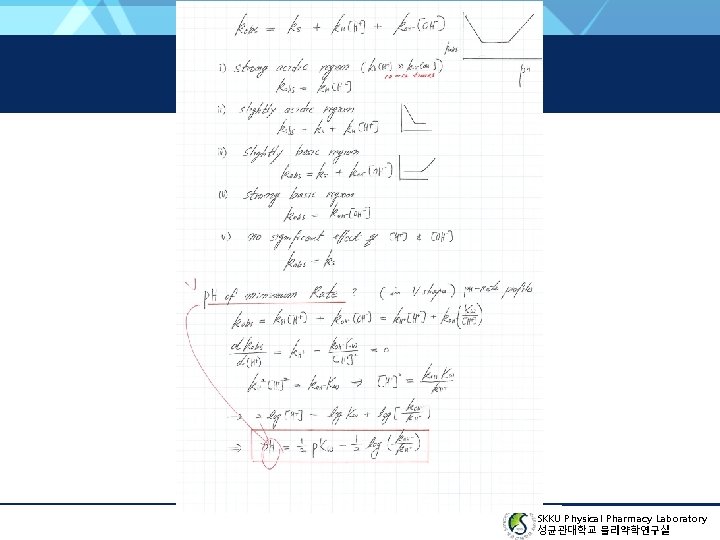 kobs = ks + kH[H+] + kOH-[OH-]
kobs
pH
i) strong acidic region (kH[H+] >> kOH-[OH-])
kobs = kH[H+]
ii) slightly acidic region
kobs = ks + kH[H+]
iii) slightly basic region
kobs = ks + kOH-[OH-]
iv) strong basic region
kobs = kOH-[OH-]
v) no significant effect of [H+] & [OH-]
kobs = ks
pH of minimum Rate ? (in V shape) pH-rate profiles
kobs = kH[H+] + kOH-[OH-] = kH+[H+] + kOH-(Kw/[H+])
dkobs/d[H+] = kH+ - kOH-Kw/[H+]² = 0
kH+[H+]² = kOH-Kw ⇒ [H+]² = kOH-Kw/kH+
⇒ 2log[H+] = logKw + log[kOH-/kH+]
⇒ pH = 1/2 pKw - 1/2 log(kOH-/kH+)
SKKU Physical Pharmacy Laboratory
성균관대학교 물리약학연구실